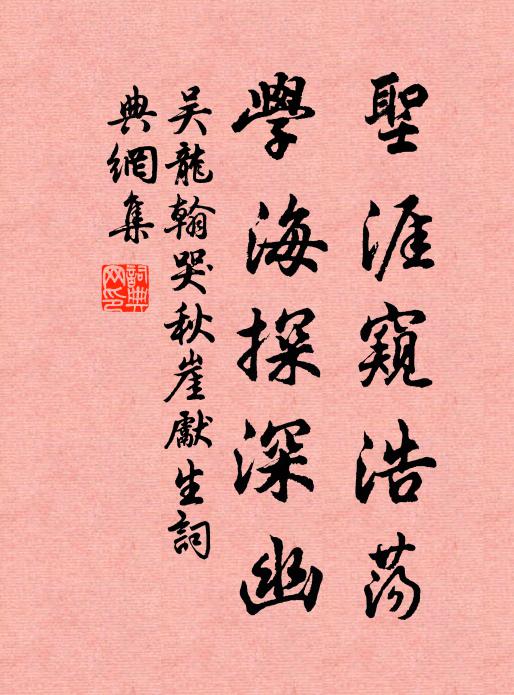 聖涯窺浩蕩
學海探深幽
吴龍翰哭秋崖獻生詞
典網集
詞典網印